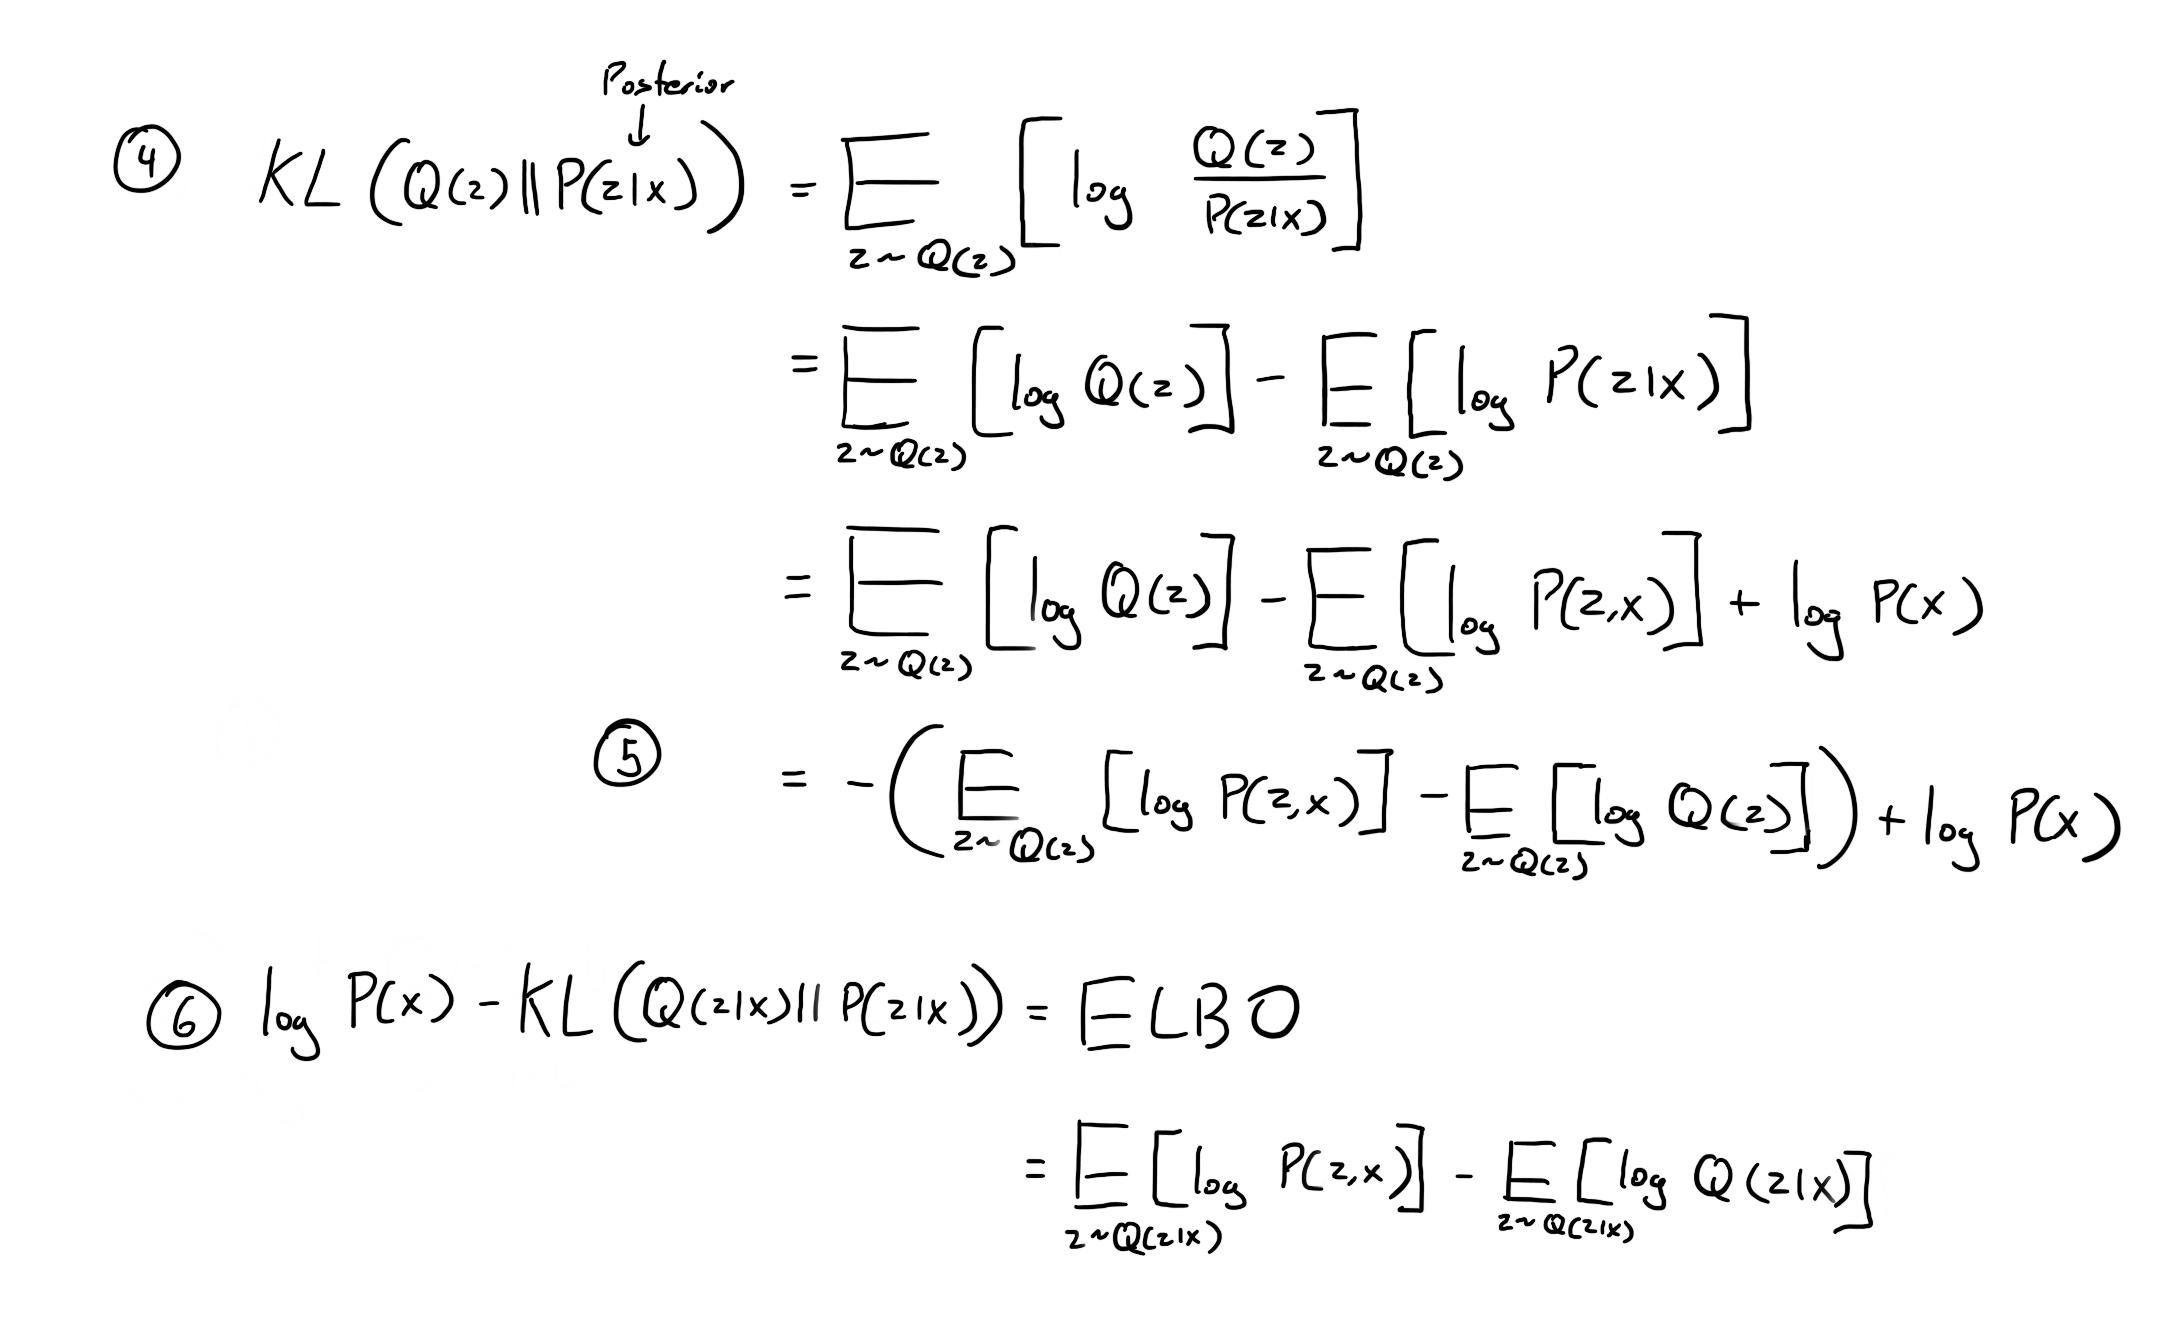 Posterior
↓
④ KL (Q(z) || P(z|x)) = E_{z~Q(z)} [log Q(z)/P(z|x)]
= E_{z~Q(z)} [log Q(z)] - E_{z~Q(z)} [log P(z|x)]
= E_{z~Q(z)} [log Q(z)] - E_{z~Q(z)} [log P(z,x)] + log P(x)
⑤ = -(E_{z~Q(z)} [log P(z,x)] - E_{z~Q(z)} [log Q(z)]) + log P(x)
⑥ log P(x) - KL (Q(z|x) || P(z|x)) = ELBO
= E_{z~Q(z|x)} [log P(z,x)] - E_{z~Q(z|x)} [log Q(z|x)]